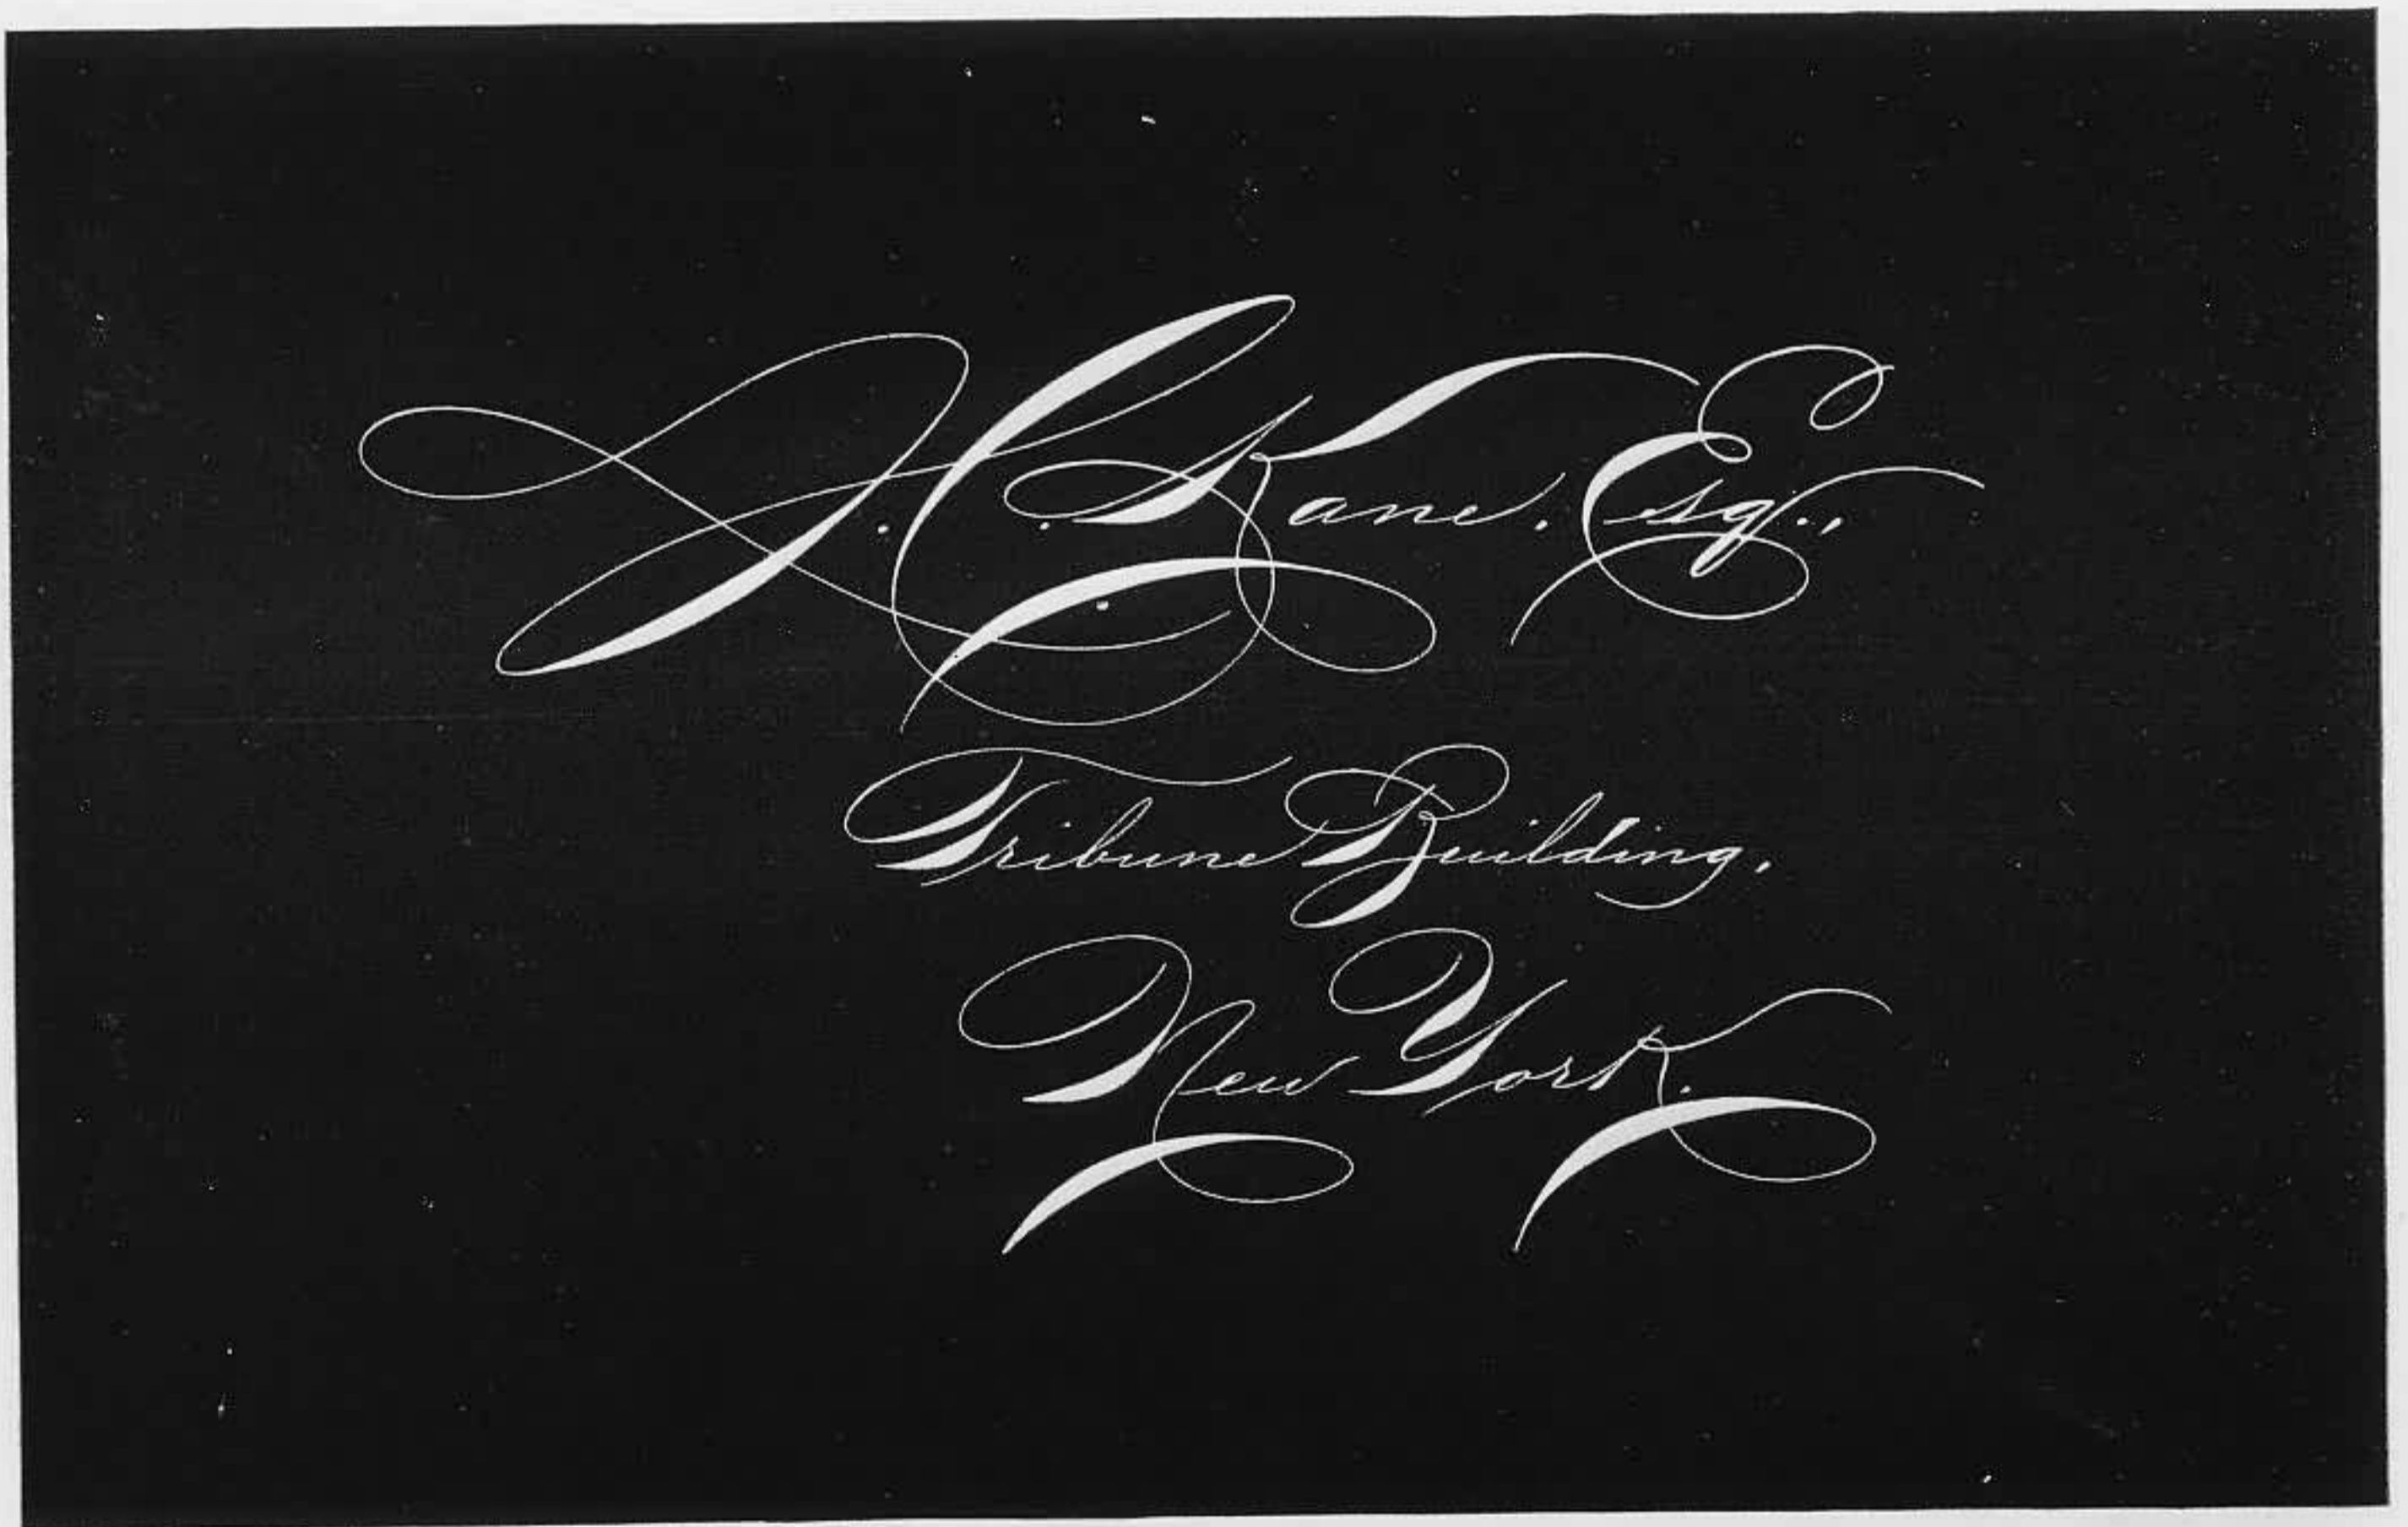 J. C. Kane, Esq.,
Tribune Building,
New York.